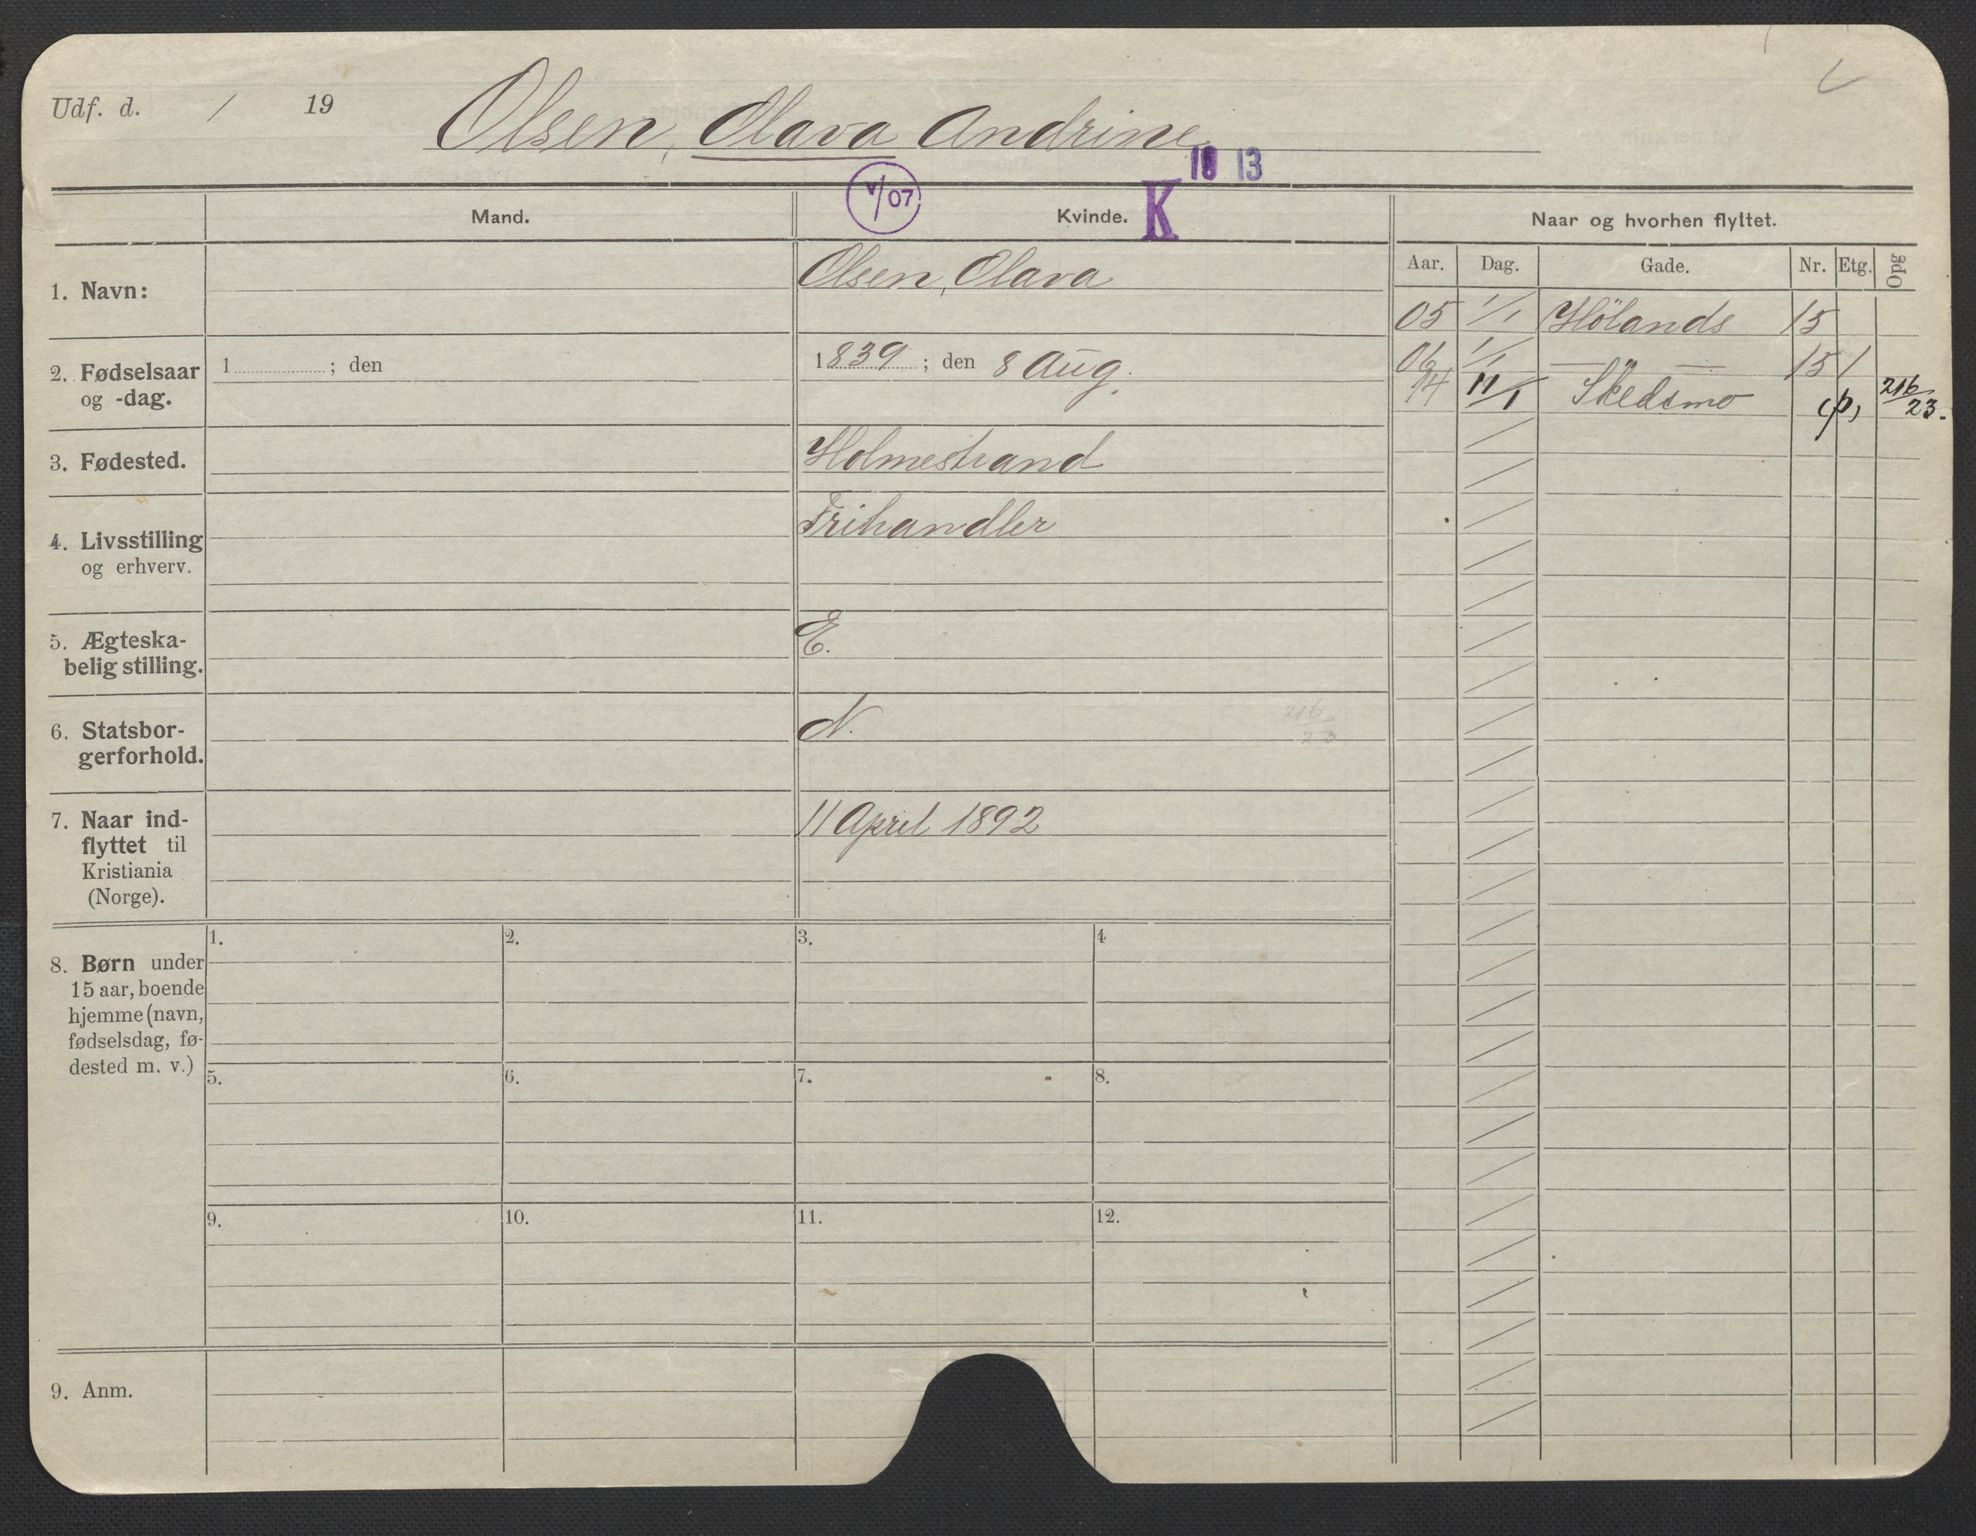 Udf. d. / 19
Olsen, Olava Andrine
18 13
V/07
K
Mand.
Kvinde.
Naar og hvorhen flyttet.
Aar. Dag. Gade. Nr. Etg. Opg
1. Navn:
Olsen, Olava
05 1/1 Hölands 15
2. Fødselsaar
og -dag.
1 ; den
1839 ; den 8 Aug.
06 1/1 — — 15 1
14 11/1 Skedsmo (p) 216/23.
3. Fødested.
Holmestrand
4. Livsstilling
og erhverv.
Frihandler
5. Ægteska-
belig stilling.
E.
6. Statsbor-
gerforhold.
N.
216
23
7. Naar ind-
flyttet til
Kristiania
(Norge).
11 April 1892
8. Børn under
15 aar, boende
hjemme (navn,
fødselsdag, fø-
dested m. v.)
1. 2. 3. 4
5. 6. 7. 8.
9. 10. 11. 12.
9. Anm.